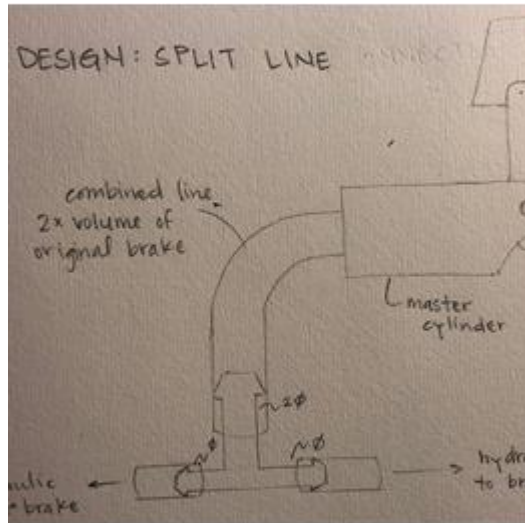 DESIGN: SPLIT LINE
combined line
2x volume of
original brake
master
cylinder
2ø
ø
ø
to
brake